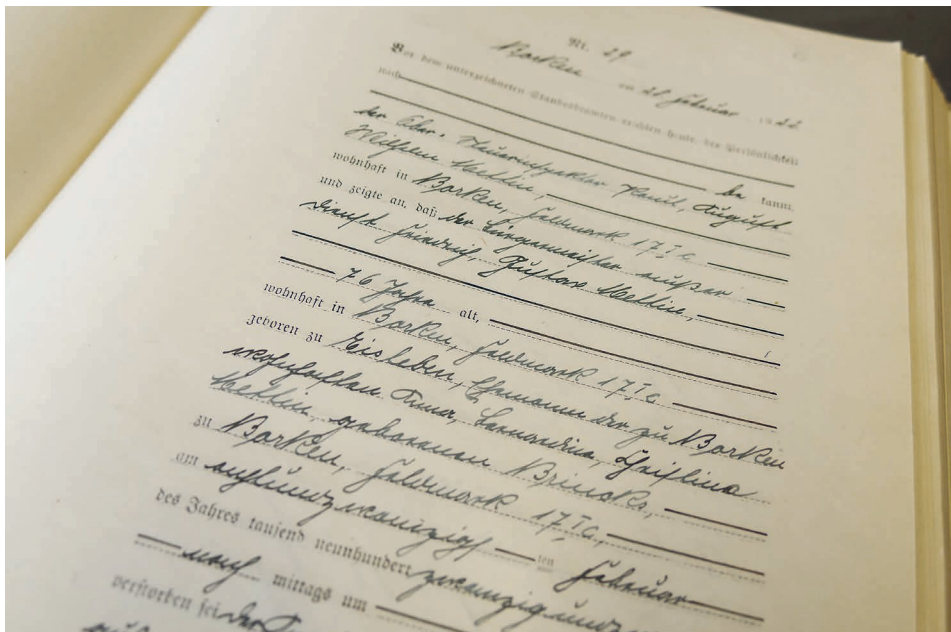 Nr. 29
Borken am 21. Februar 1922
Vor dem unterzeichneten Standesbeamten erschien heute, der Persönlichkeit
nach
kannt,
der Ober-Steuerinspektor Paul, August
Wilhelm
wohnhaft in Borken, Feldmark 17 I c
und zeigte an, daß der Bürgermeister außer
Dienst Friedrich, Gustav
76 Jahre alt,
wohnhaft in Borken, Feldmark 17 I c
geboren zu Eisleben, Ehemann der zu Borken
wohnhaften Anna, Bernardina, Christina
geborenen Brinck,
zu Borken, Feldmark 17 I c,
am achtundzwanzigsten Februar
des Jahres tausend neunhundert zwanzigund
nach mittags um
verstorben sei. Der